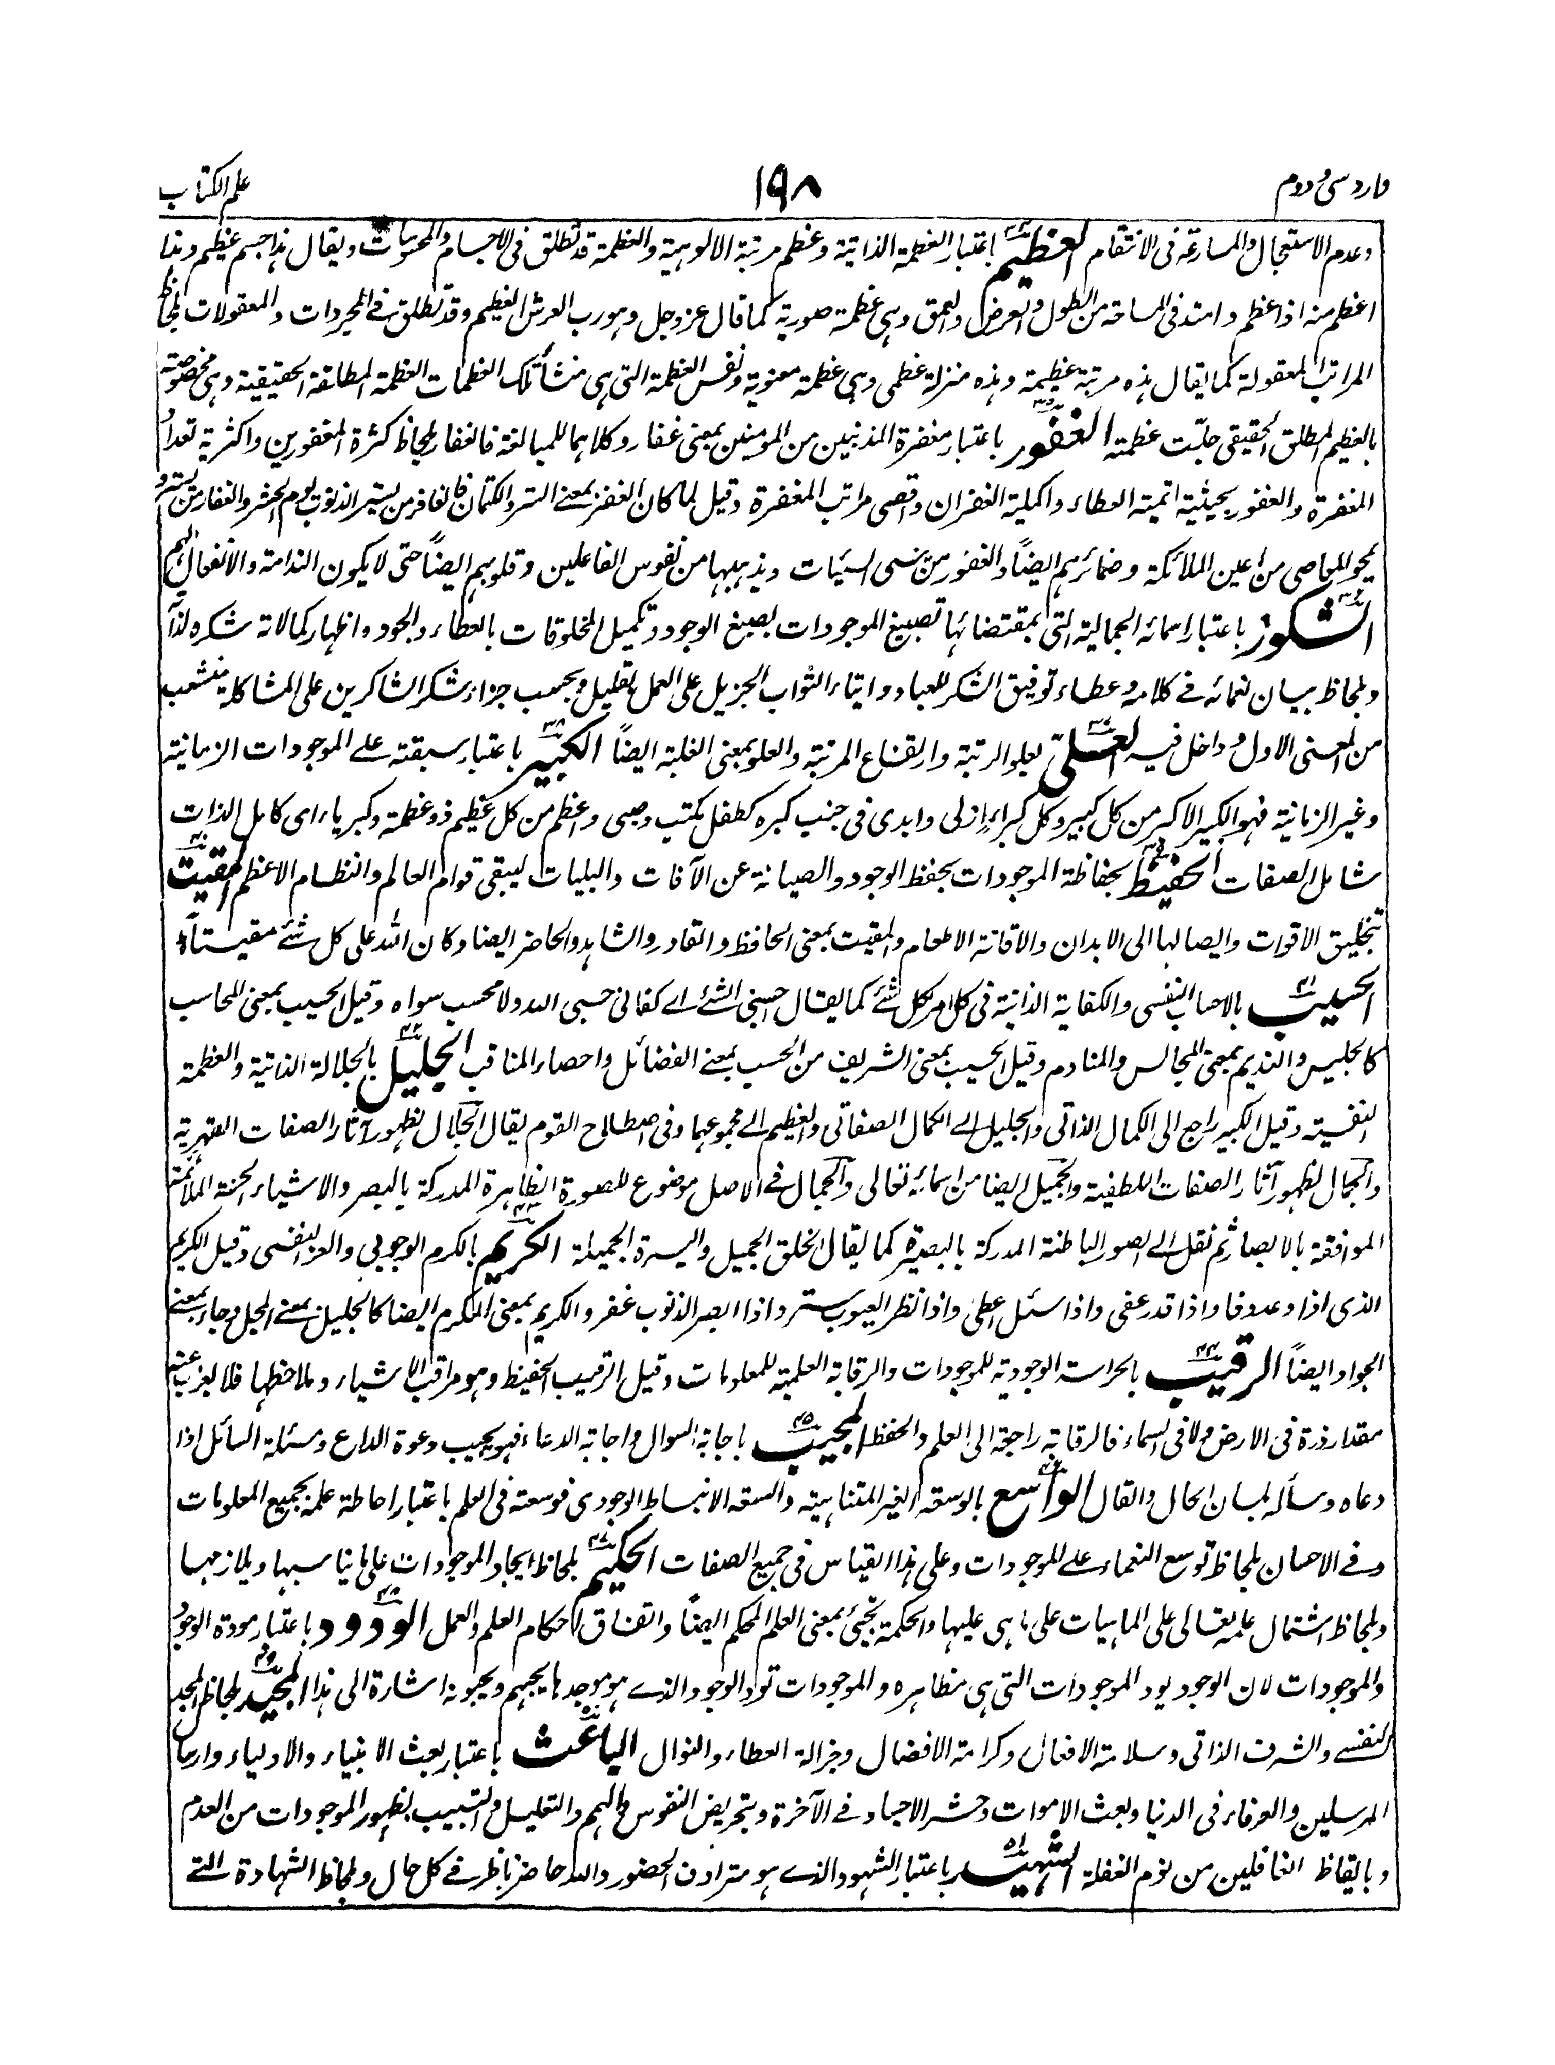 وارد سی و دوم ۱۹۸ علم الکتاب
وعدم الاستعجال والمسارعة فی الانتقام العظیم ۳۴ باعتبار العظمة الذاتیة وعظم مرتبة الالوهیة والعظمة قد تطلق فی الاجسام والمحسوسات ویقال هذا جسم عظیم وهذا
اعظم منه اذا عظم وامتد فی المساحة من الطول والعرض والعمق وهی عظمة صوریة کما قال عز وجل وهو رب العرش العظیم وقد تطلق فی المجردات والمعقولات بلحاظ
المراتب المعقولة کما یقال هذه مرتبة عظیمة وهذه منزلة عظمی وهی عظمة معنویة ونفس العظمة التی هی منشأ تلک العظمات العظمة المطلقة الحقیقیة وهی مخصوصة
بالعظیم المطلق الحقیقی جلّت عظمته الغفور ۳۵ باعتبار مغفرة المذنبین من المؤمنین بمعنی غفار وکلاهما للمبالغة فالغفار بلحاظ کثرة المغفورین واکثریة تعداد
المغفرة والغفور بحیثیة اتمیة العطاء واکملیة الغفران واقصی مراتب المغفرة وقیل لما کان الغفر بمعنی الستر والکتمان فالغافر من یستر الذنوب یوم الحشر والغفار من یستر و
یمحو المعاصی من اعین الملائکة وضمائرهم ایضاً والغفور من ینسی السیّئات ویذهبها من نفوس الفاعلین وقلوبهم ایضاً حتی لا یکون الندامة والانفعال لهم
الشکور ۳۶ باعتبار اسمائه الجمالیة التی بمقتضائها تصبیغ الموجودات بصبغ الوجود وتکمیل المخلوقات بالعطاء والجود واظهار کمالاته شکره لذاته
وبلحاظ بیان نعمائه فی کلامه وعطاء توفیق الشکر للعباد وایتاء الثواب الجزیل علی العمل القلیل وبحسب جزاء شکر الشاکرین علی المشاکلة منشعب
من المعنی الاول وداخل فیه العلیّ ۳۷ بعلو الرتبة وارتفاع المرتبة والعلو بمعنی الغلبة ایضاً الکبیر ۳۸ باعتبار سبقته علی الموجودات الزمانیة
وغیر الزمانیة فهو الکبیر الاکبر من کل کبیر وکل کبراء ازلی وابدی فی جنب کبره کطفل مکتب وصبی واعظم من کل عظیم ذو عظمة وکبریاء ای کامل الذات
شامل الصفات الحفیظ ۳۹ بحفاظة الموجودات بحفظ الوجود والصیانة عن الآفات والبلیات لیبقی قوام العالم والنظام الاعظم المقیت ۴۰
بتخلیق الاقوات وایصالها الی الابدان والاقاتة الاطعام والمقیت بمعنی الحافظ والقادر والشاهد والحاضر ایضا وکان الله علی کل شئ مقیتاً
الحسیب ۴۱ بالاحساب النفسی والکفایة الذاتیة فی کل امر کل شئ کما یقال احسبنی الشئ ای کفانی حسبی الله ولا محسب سواه وقیل الحسیب بمعنی المحاسب
کالجلیس والندیم بمعنی المجالس والمنادم وقیل الحسیب بمعنی الشریف من الحسب بمعنی الفضائل واحصاء المناقب الجلیل ۴۲ بالجلالة الذاتیة والعظمة
النفسیة وقیل الکبیر راجع الی الکمال الذاتی والجلیل الی الکمال الصفاتی والعظیم الی مجموعهما وفی اصطلاح القوم یقال الجلال لظهور آثار الصفات القهریة
والجمال لظهور آثار الصفات اللطفیة والجمیل ایضا من اسمائه تعالی والجمال فی الاصل موضوع للصورة الظاهرة المدرکة بالبصر والاشیاء الحسنة الملائمة
الموافقة بالابصار ثم نقل الی الصور الباطنة المدرکة بالبصیرة کما یقال الخلق الجمیل والسیرة الجمیلة الکریم ۴۳ بالکرم الوجوبی والعز النفسی وقیل الکریم
الذی اذا وعد وفا واذا قدر عفی واذا سئل اعطی واذا نظر العیوب ستر واذا ابصر الذنوب غفر والکریم بمعنی المکرم ایضا کالجلیل بمعنی المجل وجاء بمعنی
الجواد ایضاً الرقیب ۴۴ بالحراسة الوجودیة للموجودات والرقابة العلمیة للمعلومات وقیل الرقیب الحفیظ وهو مراقب الاشیاء وملاحظها فلا یعزب عنه
مقدار ذرة فی الارض ولا فی السماء فالرقابة راجعة الی العلم والحفظ المجیب ۴۵ باجابة السوال واجابة الدعاء فهو یجیب دعوة الداع ومسئلة السائل اذا
دعاه وسأله بلسان الحال والقال الواسع ۴۶ بالوسعة الغیر المتناهیة والسعة الانبساط الوجودی فوسعته فی العلم باعتبار احاطة علمه بجمیع المعلومات
وفی الاحسان بلحاظ توسع النعماء علی الموجودات وعلی هذا القیاس فی جمیع الصفات الحکیم ۴۷ بلحاظ ایجاد الموجودات علی ما یناسبها ویلازمها
وبلحاظ اشتمال علمه تعالی علی الماهیات علی ما هی علیها والحکمة تجئ بمعنی العلم المحکم ایضاً واتفاق احکام العلم والعمل الودود ۴۸ باعتبار مودة الوجود
والموجودات لان الوجود یود الموجودات التی هی مظاهره والموجودات تود الوجود الذی هو موجدها یحبهم ویحبونه اشارة الی هذا المجید ۴۹ بلحاظ المجد
النفسی والشرف الذاتی وسلامة الافعال وکرامة الافضال وجزالة العطاء والنوال الباعث ۵۰ باعتبار بعث الانبیاء والاولیاء وارسال
المرسلین والعرفاء فی الدنیا وبعث الاموات وحشر الاجساد فی الآخرة وبتحریض النفوس والهمم والتعلیل والتسبیب لظهور الموجودات من العدم
وبایقاظ الغافلین من نوم الغفلة الشهید ۵۱ باعتبار الشهود الذی هو مترادف الحضور والله حاضر ناظر فی کل حال وبلحاظ الشهادة التی